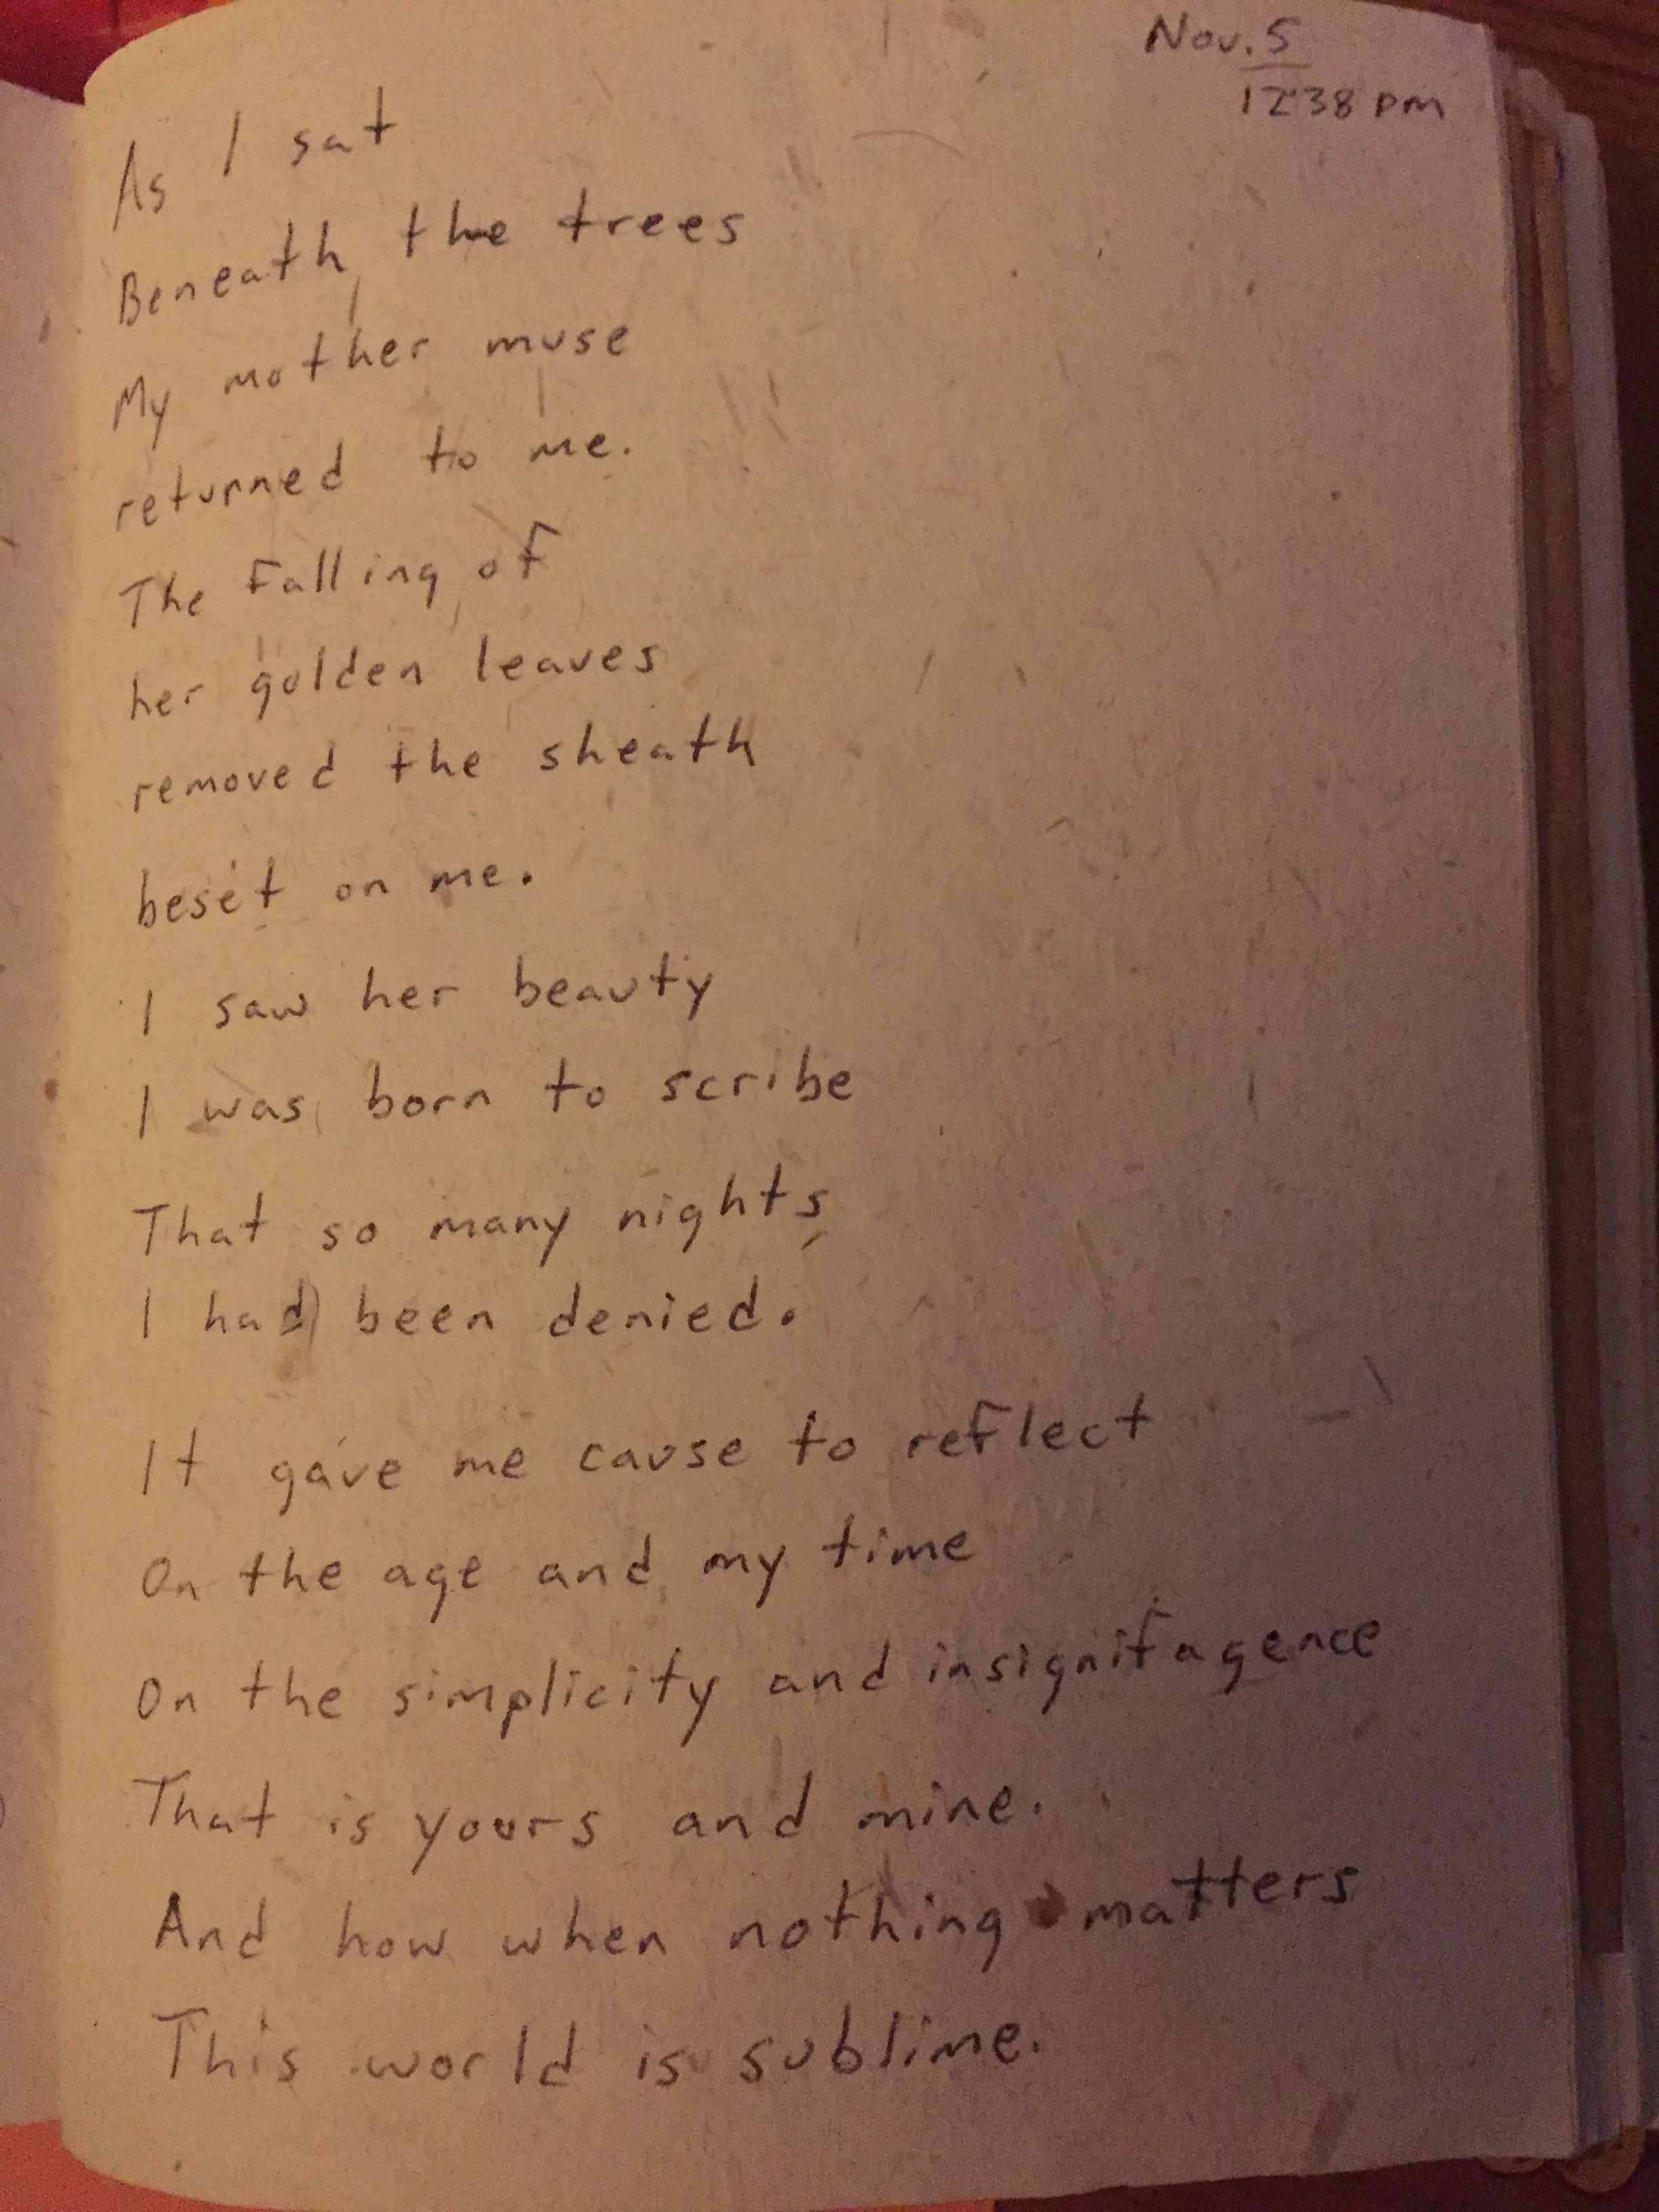 Nov. 5
12:38 pm
As I sat
Beneath the trees
My mother muse
returned to me.
The falling of
her golden leaves
removed the sheath
beset on me.
I saw her beauty
I was born to scribe
That so many nights
I had been denied.
It gave me cause to reflect
On the age and my time
On the simplicity and insignifagence
That is yours and mine.
And how when nothing matters
This world is sublime.